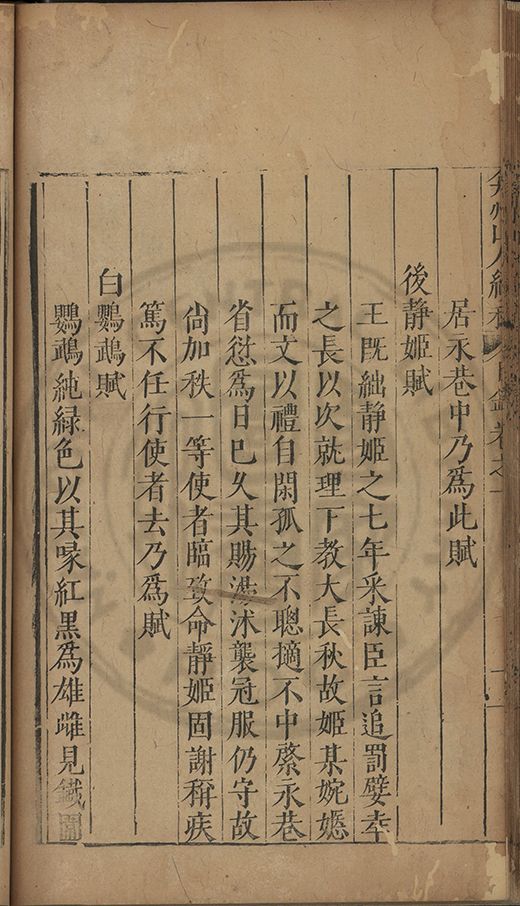 弇州山人續稿 目錄卷之一
居永巷中乃爲此賦
後靜姬賦
王既絀靜姬之七年采諫臣言追罰嬖幸
之長以次就理下教大長秋故姬某婉嫕
而文以禮自閑孤之不聰擿不中縶永巷
省愆爲日已久其賜湯沐襲冠服仍守故
尙加秩一等使者臨致命靜姬固謝稱疾
篤不任行使者去乃爲賦
白鸚鵡賦
鸚鵡純緑色以其喙紅黑爲雄雌見鐵圍